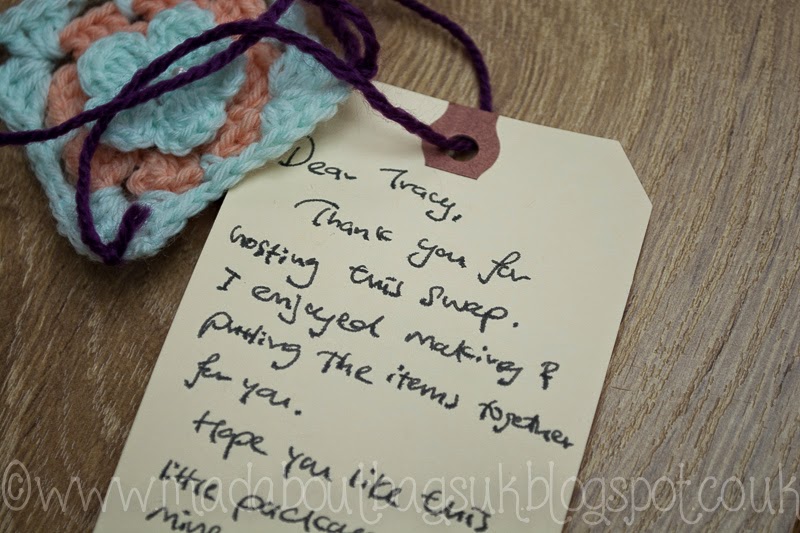 Dear Tracy,
Thank you for
hosting this swap.
I enjoyed making &
putting the items together
for you.
Hope you like this
little package
mine
©www.madaboutbagsuk.blogspot.co.uk